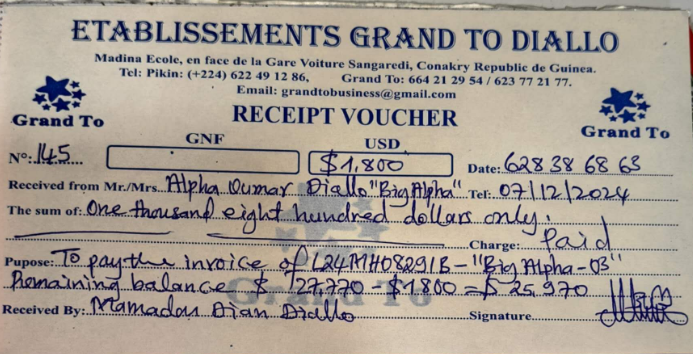 ETABLISSEMENTS GRAND TO DIALLO
Madina Ecole, en face de la Gare Voiture Sangaredi, Conakry Republic de Guinea.
Tel: Pikin: (+224) 622 49 12 86, Grand To: 664 21 29 54 / 623 77 21 77.
Email: grandtobusiness@gmail.com
Grand To
RECEIPT VOUCHER
Grand To
GNF USD
No: 145 $1,800 Date: 628 38 68 63
Received from Mr./Mrs. Alpha Oumar Diallo "Big Alpha" Tel: 07/12/2024
The sum of: One thousand eight hundred dollars only.
Charge: Paid
Pupose: To pay the invoice of L24MH08291B - "Big Alpha-03"
Remaining balance $ 27,770 - $1,800 = $ 25,970
Grand To
Received By: Mamadou Dian Diallo Signature